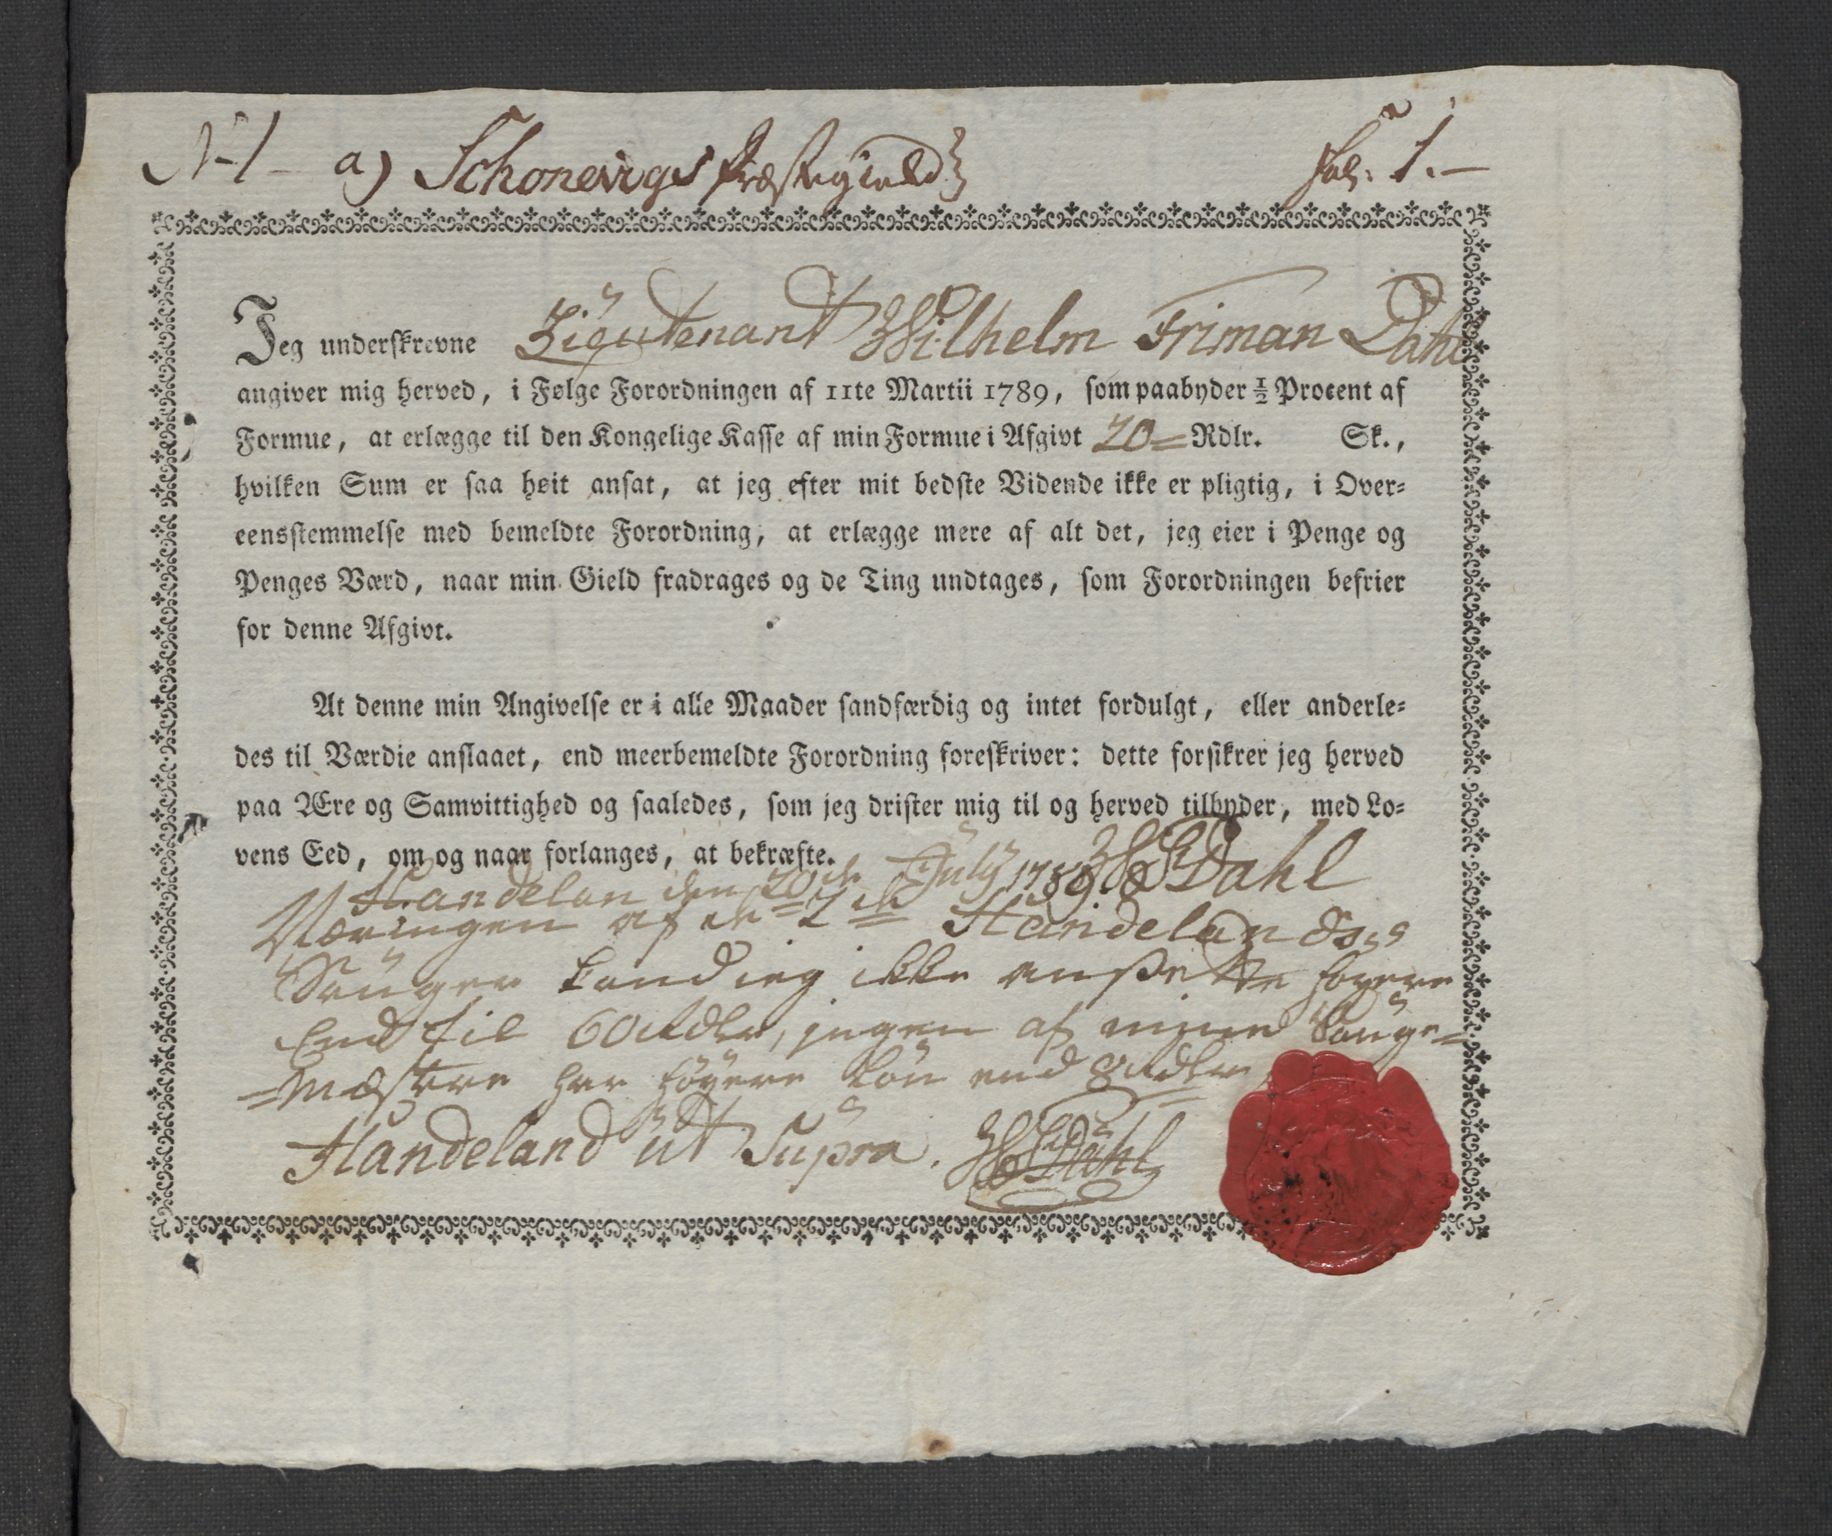 N 1 a) Schonevigs Præstegield fol: 1.
Jeg underskrevne Lieutenant Wilhelm Friman Dahl
angiver mig herved, i Følge Forordningen af 11te Martii 1789, som paabyder ½ Procent af
Formue, at erlægge til den Kongelige Kasse af min Formue i Afgivt 20 Rdlr. Sk.,
hvilken Sum er saa høit ansat, at jeg efter mit bedste Vidende ikke er pligtig, i Over-
eensstemmelse med bemeldte Forordning, at erlægge mere af alt det, jeg eier i Penge og
Penges Værd, naar min Gield fradrages og de Ting undtages, som Forordningen befrier
for denne Afgivt.
At denne min Angivelse er i alle Maader sandfærdig og intet fordulgt, eller anderle-
des til Værdie anslaaet, end meerbemeldte Forordning foreskriver: dette forsikrer jeg herved
paa Ære og Samvittighed og saaledes, som jeg drister mig til og herved tilbyder, med Lo-
vens Eed, om og naar forlanges, at bekræfte.
Handelan den 20de July 1789 WFDahl
Næringen af de 2de Handelands
Sauger kand ieg ikke ansætte høyere
End til 60 Rdlr, ingen af mine Sauge-
=mæstere har høyere Løn end 8 Rdlr
Handeland ut Supra. WFDahl